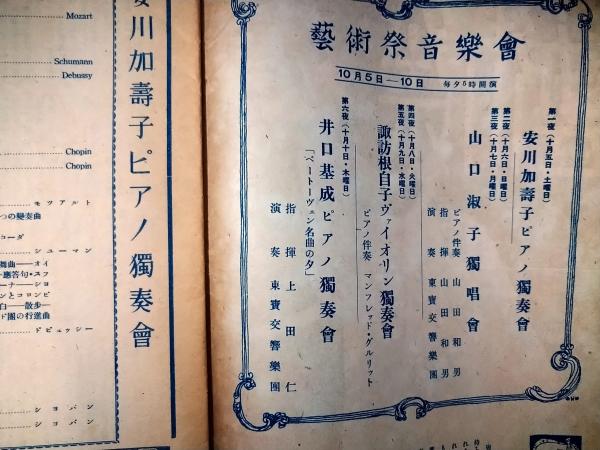 藝術祭音樂會
10月5日—10日 每夕5時開演
第一夜（十月五日・土曜日）
安川加壽子ピアノ獨奏會
第二夜（十月六日・日曜日）
第三夜（十月七日・月曜日）
山口淑子獨唱會
ピアノ伴奏 山田和男
指揮 山田和男
演奏 東寶交響樂團
第四夜（十月八日・火曜日）
第五夜（十月九日・水曜日）
諏訪根自子ヴァイオリン獨奏會
ピアノ伴奏 マンフレッド・グルリット
第六夜（十月十日・木曜日）
井口基成ピアノ獨奏會
「ベートーヴェン名曲の夕」
指揮 上田仁
演奏 東寶交響樂團
安川加壽子ピアノ獨奏會
Mozart
Schumann
Debussy
Chopin
Chopin
モツアルト
つの變奏曲
コーダ
シューマン
舞曲——オイ
應答句・スフ
ーナ——ショ
ンとコロンビ
白——散步—
ド團の行進曲
ドビュッシー
ショパン
ショパン